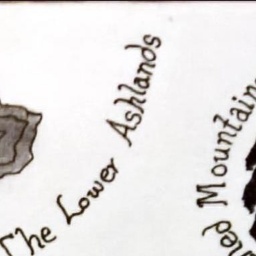 The Lower Ashlands
Mountains